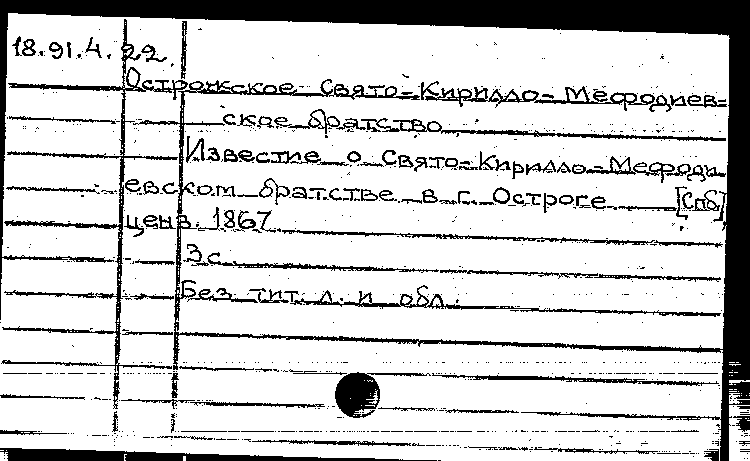 18.91.4.22.
Острожское Свято-Кирилло-Мефодиев-
ское братство
Известие о Свято-Кирилло-Мефоди
евском братстве в г. Остроге [Спб]
ценз. 1867
3с.
Без тит. л. и обл.